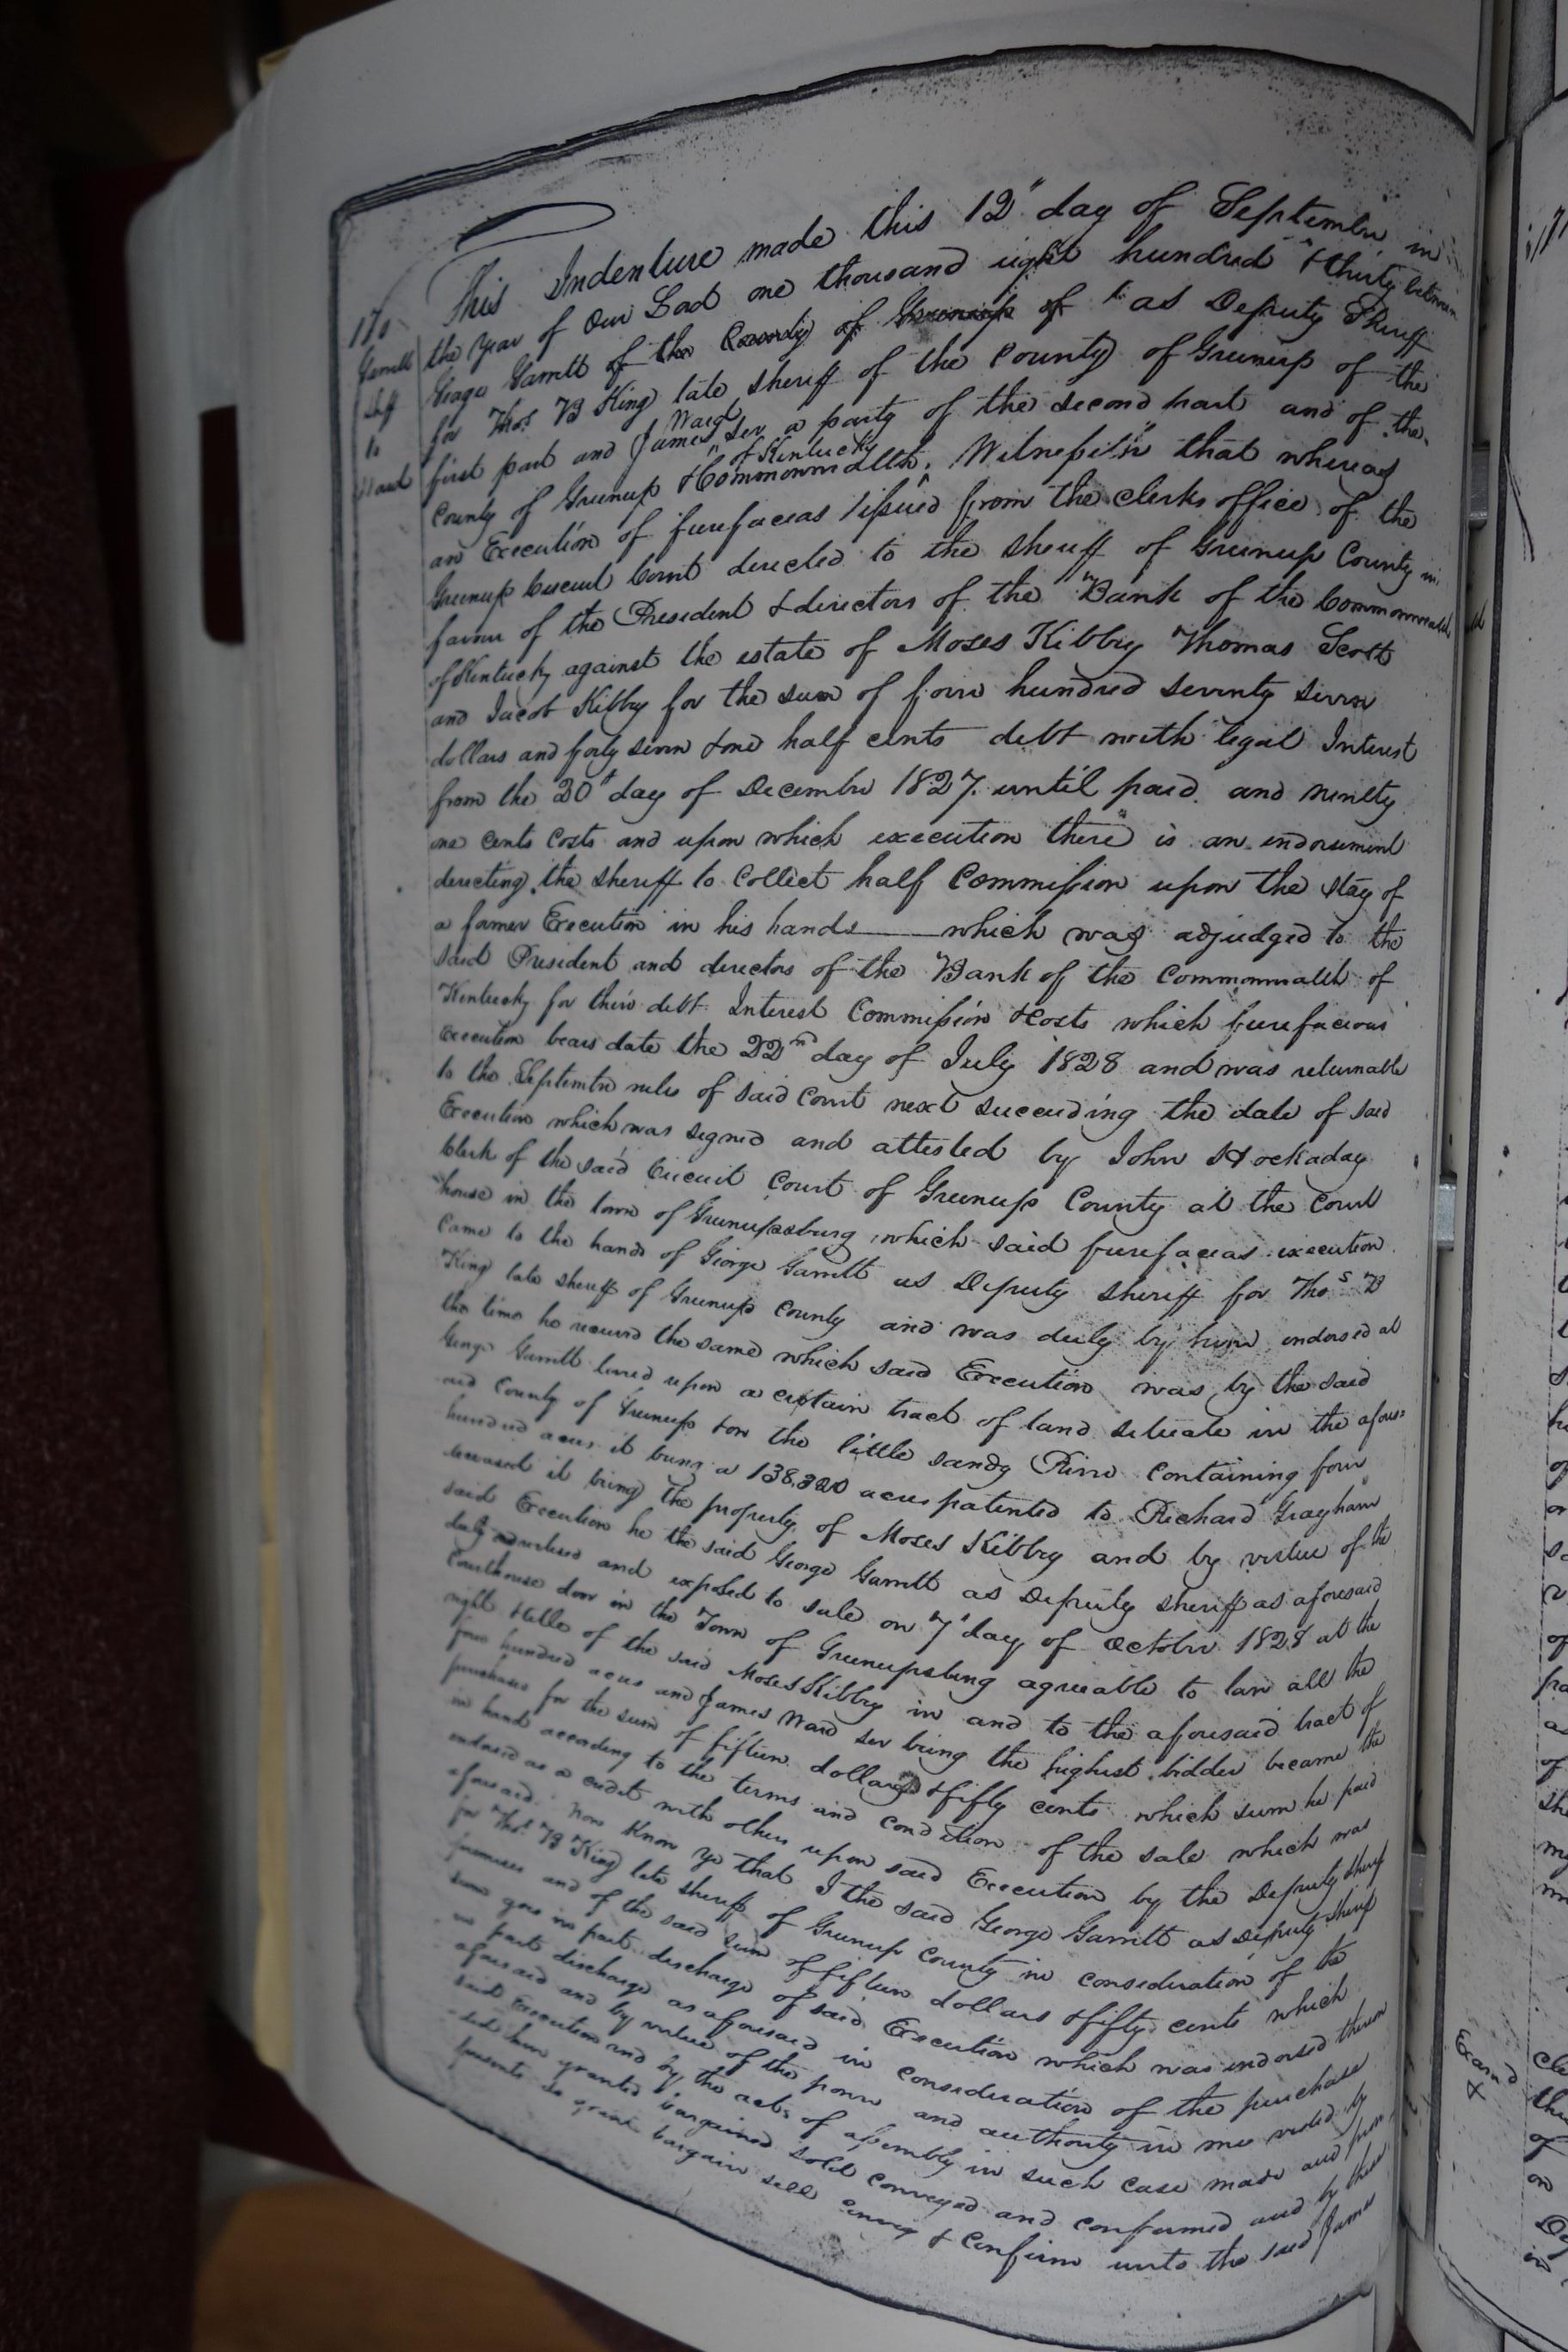 This Indenture made this 12" day of September in
the year of our Lord one thousand eight hundred & thirty between
George Garrett of the County of Greenup of as Deputy Sheriff
for Thos. B King late sheriff of the County of Greenup of the
first part and James Ward Ser a party of the second part and of the
County of Greenup & Commonwealth of Kentucky, Witnesseth that whereas
an Execution of fierefacias issued from the clerks office of the
Greenup Circuit Court directed to the sheriff of Greenup County in
favour of the President & directors of the Bank of the Commonwealth
of Kentucky against the estate of Moses Kibby Thomas Scott
and Jacob Kibby for the sum of four hundred seventy seven
dollars and forty seven & one half cents debt with legal Interest
from the 20th day of December 1827. until paid. and ninety
one cents costs and upon which execution there is an indorsement
directing the sheriff to Collect half Commission upon the stay of
a former Execution in his hands which was adjudged to the
said President and directors of the Bank of the Commonwealth of
Kentucky for their debt Interest Commission & Costs which fierefacious
execution bears date the 22nd day of July 1828 and was returnable
to the September rules of said Court next succeeding the date of said
Execution which was signed and attested by John Hockaday
Clerk of the said Circuit Court of Greenup County at the Court
house in the town of Greenupsburg which said fierefacias execution
Came to the hands of George Garrett as Deputy sheriff for Thos B
King late sheriff of Greenup County and was duly by him endorsed at
the time he received the same which said Execution was by the said
George Garrett levied upon a certain tract of land situate in the afore=
said County of Greenup & on the little sandy River containing four
hundred acres it being a 138,320 acres patented to Richard Grayham
deceased it being the property of Moses Kibby and by virtue of the
said Execution he the said George Garrett as Deputy sheriff as aforesaid
duly advertised and exposed to sale on 7th day of October 1828 at the
Courthouse door in the Town of Greenupsburg agreeable to law all the
right & title of the said Moses Kibby in and to the aforesaid tract of
four hundred acres and James Ward ser being the highest bidder became the
purchaser for the sum of fifteen dollars & fifty cents which sum he paid
in hand according to the terms and condition of the sale which was
indorsed as a credit with others upon said Execution by the Deputy sheriff
aforesaid. Now Know ye that I the said George Garrett as Deputy sheriff
for Thos. B King late sheriff of Greenup County in consideration of the
premises and of the said sum of fifteen dollars & fifty cents which
sum goes in part discharge of said Execution which was indorsed thereon
in part discharge as aforesaid in consideration of the purchase
aforesaid and by virtue of the power and authority in me vested by
said Execution and by the acts of assembly in such case made and
have granted bargained sold conveyed and confirmed and by these
presents do grant bargain sell convey & Confirm unto the said James
170
Garrett
Shff
to
Ward
Exam'd